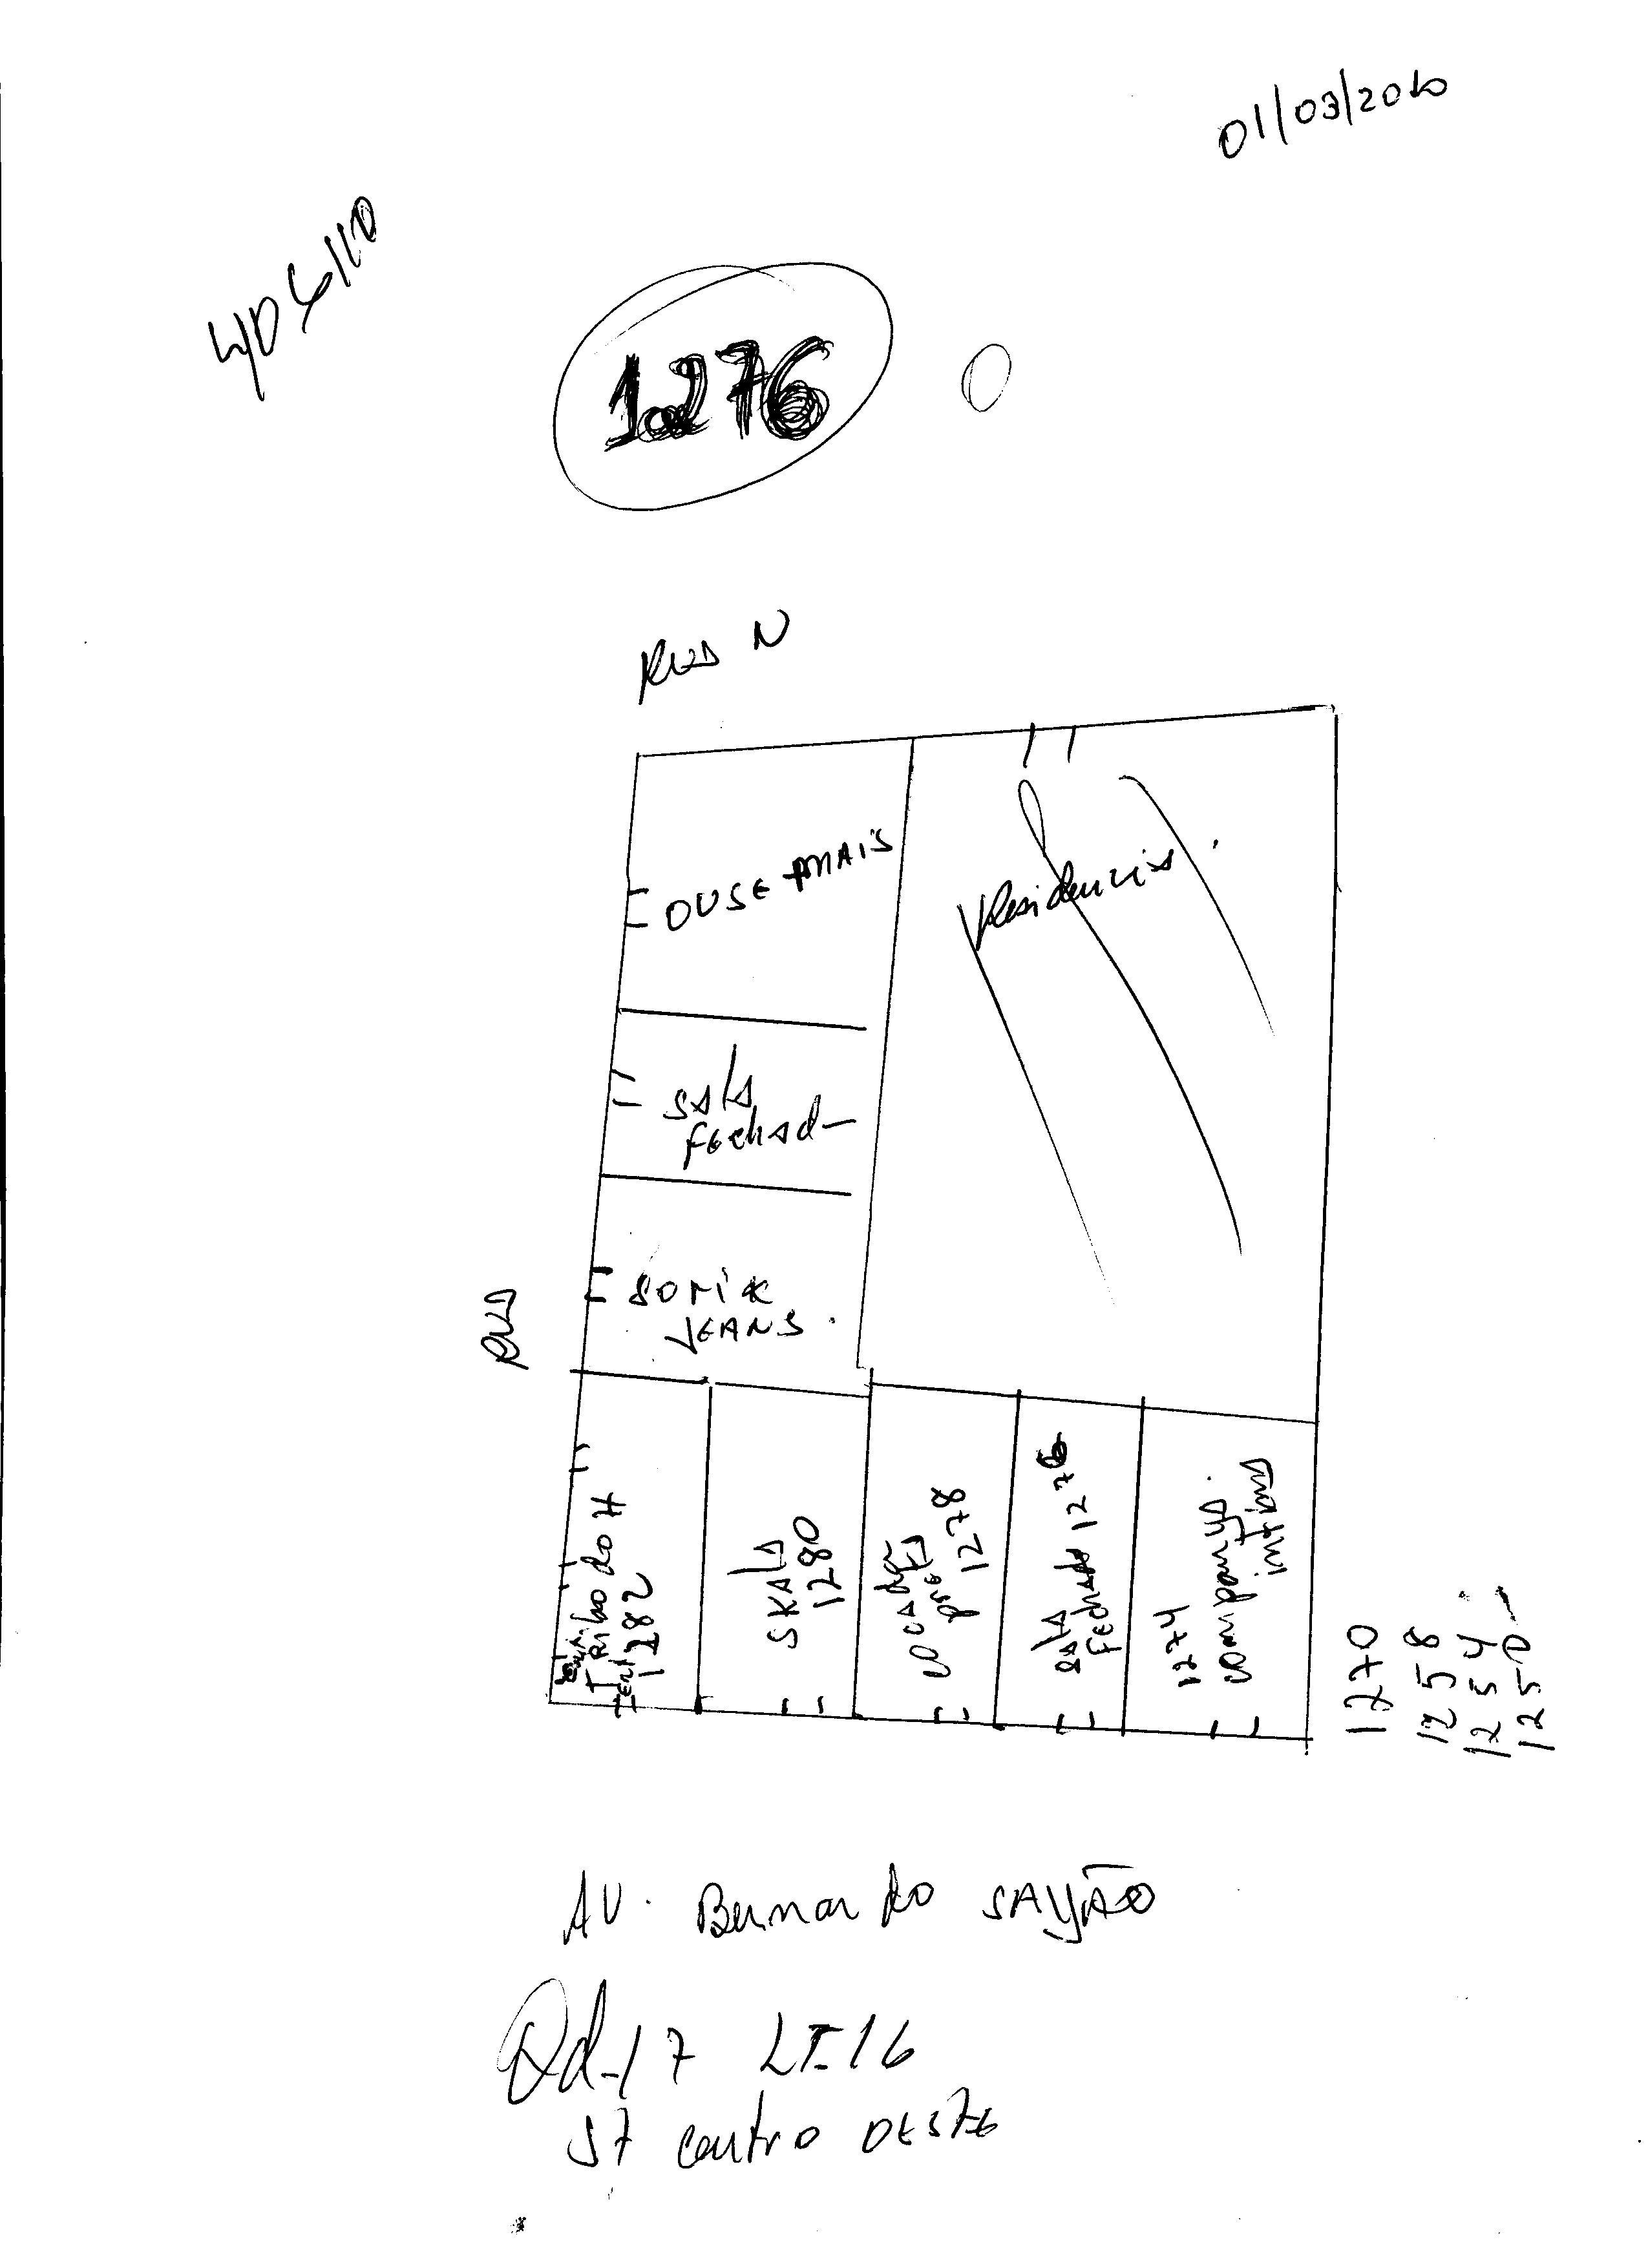 01/03/2010
1276
RUA N
OUSE MAIS
Residencia
SALA
Fechad
SORIK
JEANS.
RUA
Tribo do H
1282
SKALA
1280
preta
1278
SALA
Fechada 1276
1274
company
intima
1270
1258
1254
1250
AV. Bernardo SAYÃO
Qd-17 LT-16
ST centro OESTE